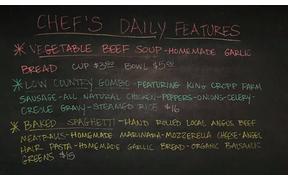 CHEF'S DAILY FEATURES
* VEGETABLE BEEF SOUP - HOMEMADE GARLIC
BREAD CUP $3.00 BOWL $5.00
* LOW COUNTRY GUMBO - FEATURING KING CROPP FARM
SAUSAGE - ALL NATURAL CHICKEN - PEPPERS - ONIONS - CELERY
CREOLE GRAVY - STEAMED RICE $16
* BAKED SPAGHETTI - HAND ROLLED LOCAL ANGUS BEEF
MEATBALLS - HOMEMADE MARINARA - MOZZERELLA CHEESE - ANGEL
HAIR PASTA - HOMEMADE GARLIC BREAD - ORGANIC BALSAMIC
GREENS $15